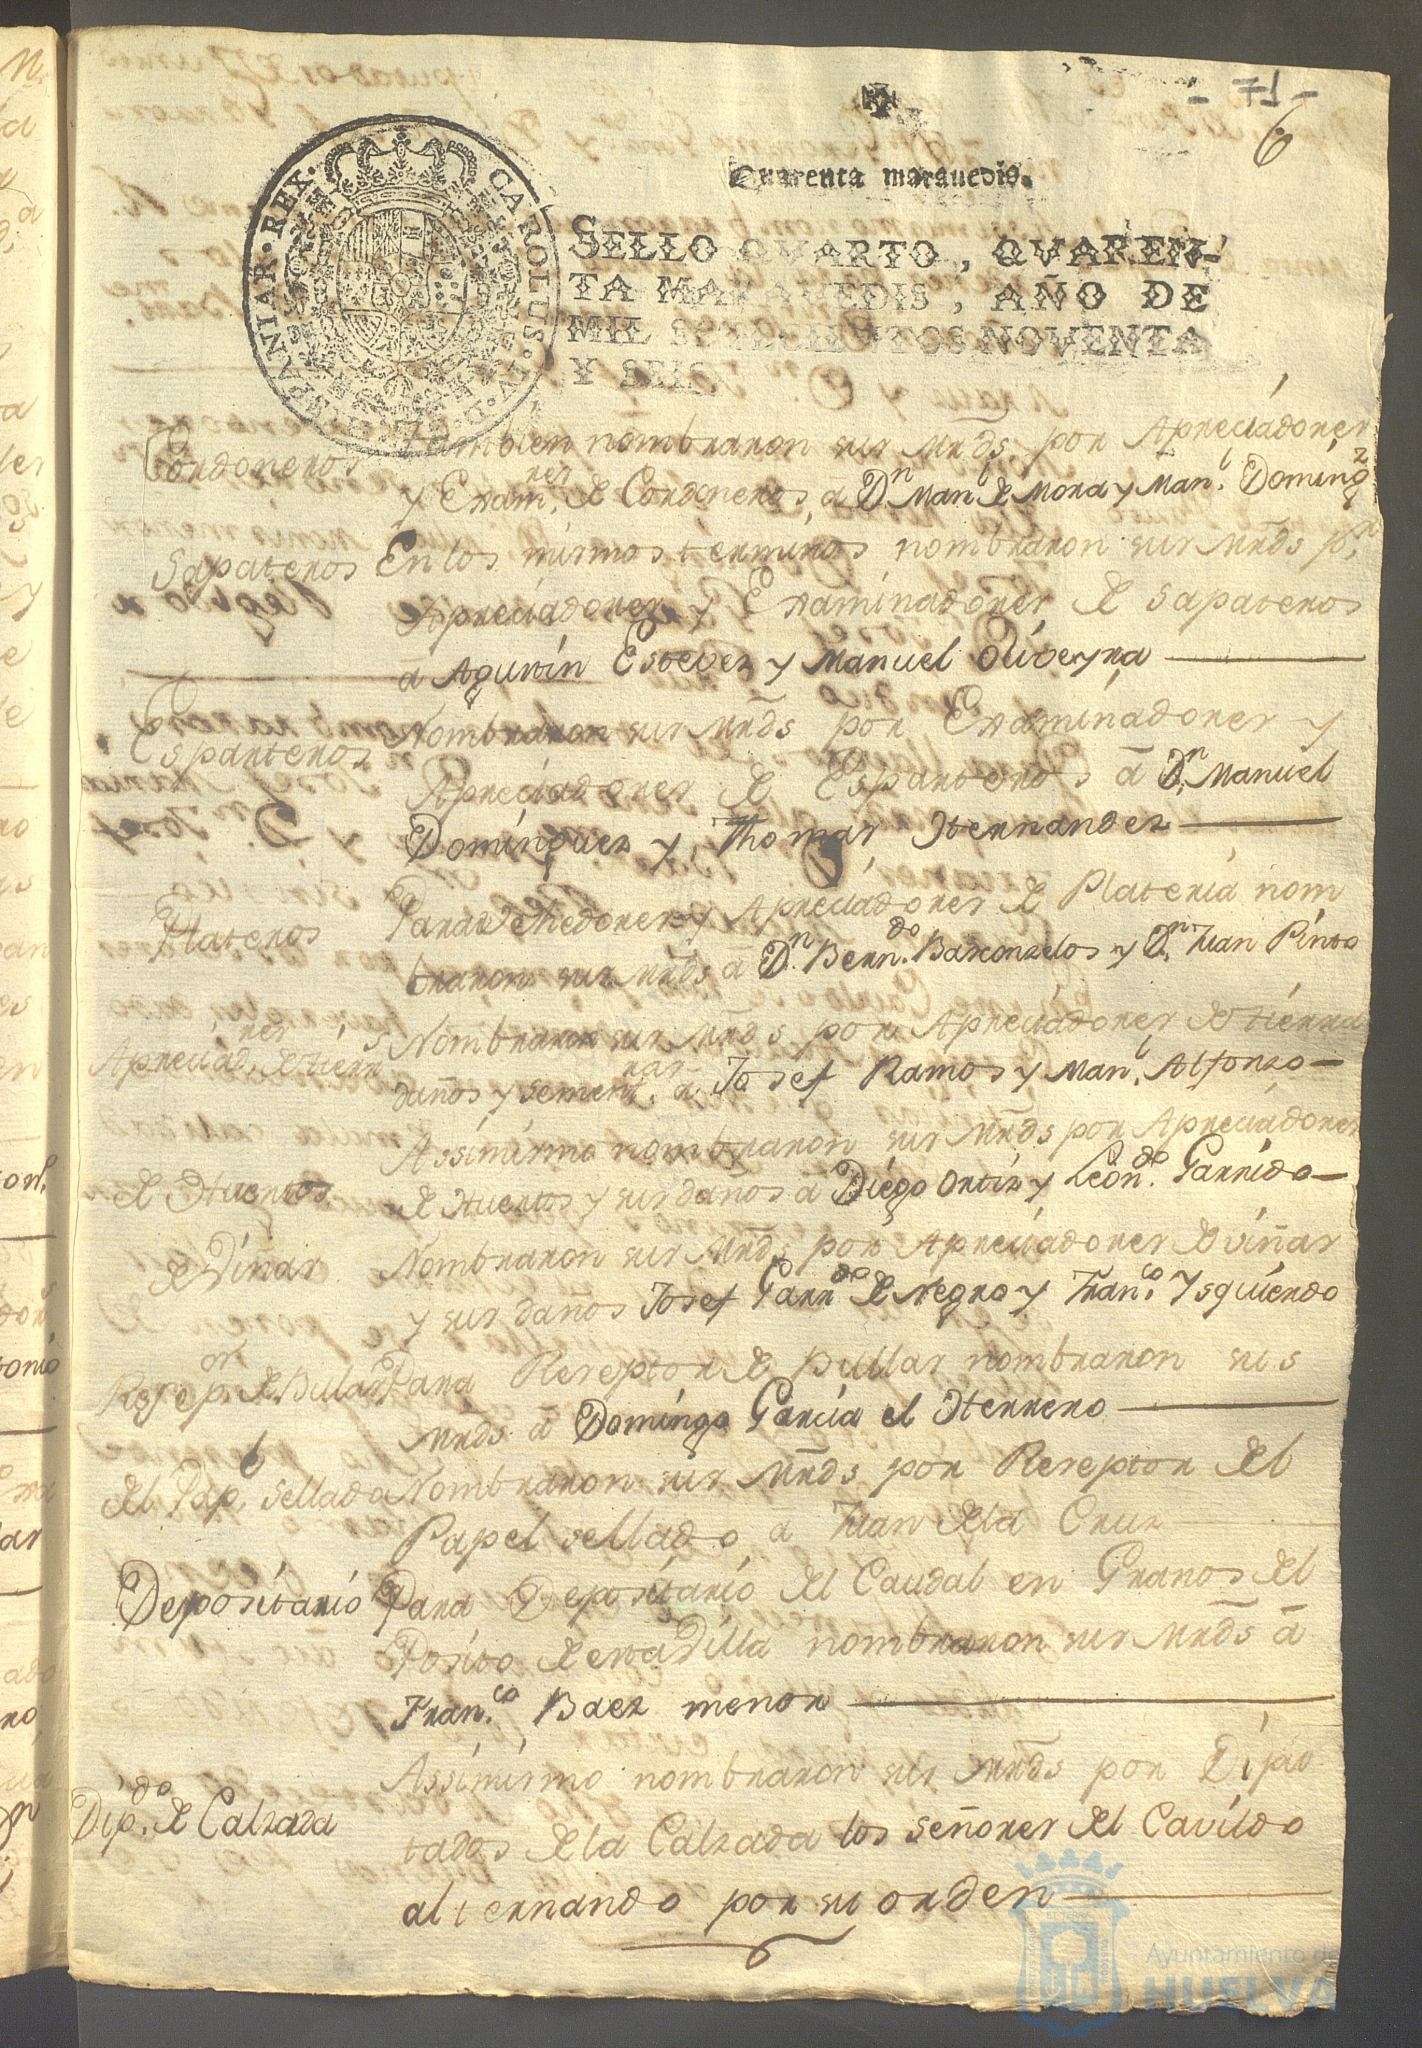 - 71 -
6
Quarenta marauedis.
SELLO QVARTO, QVAREN-
TA MARAVEDIS, AÑO DE
MIL SETECIENTOS NOVENTA
Y SEIS.
CAROLUS IV D G HISPANIAR REX
Cordoneros Tambien nombraron sus Mrds. por Apreciadores
y Exam.res de Cordoneros, a Dn. Man.l de Mora y Man.l Domingz
Sapateros En los mismos terminos nombraron sus Mrds pr.
Apreciadores y Examinadores de Sapateros
a Agustin Estevez y Manuel Oliveyra
Esparteros Nombraron sus Mrds por Examinadores y
Apreciadores de Esparteros a Dn. Manuel
Dominguez y Thomas Hernandez
Plateros Para Vehedores y Apreciadores de Plateria nom
braron sus Mrds a Dn. Bern.do Basconzelos y Dn. Juan Pinto
Apreciad.res de tierrs Nombraron sus Mrds por Apreciadores de tierra
daños y sement.ras a Josef Ramos y Man.l Alfonzo
Assimismo nombraron sus Mrds por Apreciadores
de Huertos de Huertos y sus daños a Diego Ortiz y Leon.do Garrido
de Viñas Nombraron sus Mrds por Apreciadores de viñas
y sus daños Josef Garrdo de Negro y Fran.co Ysquierdo
Resep.or de Bulas Para Reseptor de Bullas nombraron sus
Mrds a Domingo Garcia el Herrero
del Pap.l sellado Nombraron sus Mrds por Reseptor del
Papel sellado a Juan de la Cruz
Depositario Para Depositario del Caudal en Granos del
Posito de esta Villa nombraron sus Mrds a
Fran.co Baez menor
Assimismo nombraron sus Mrds por Dipu
Dip.do de Calzada tados de la Calzada los Señores del Cavildo
alternando por su orden
Ayuntamiento de
HUELVA